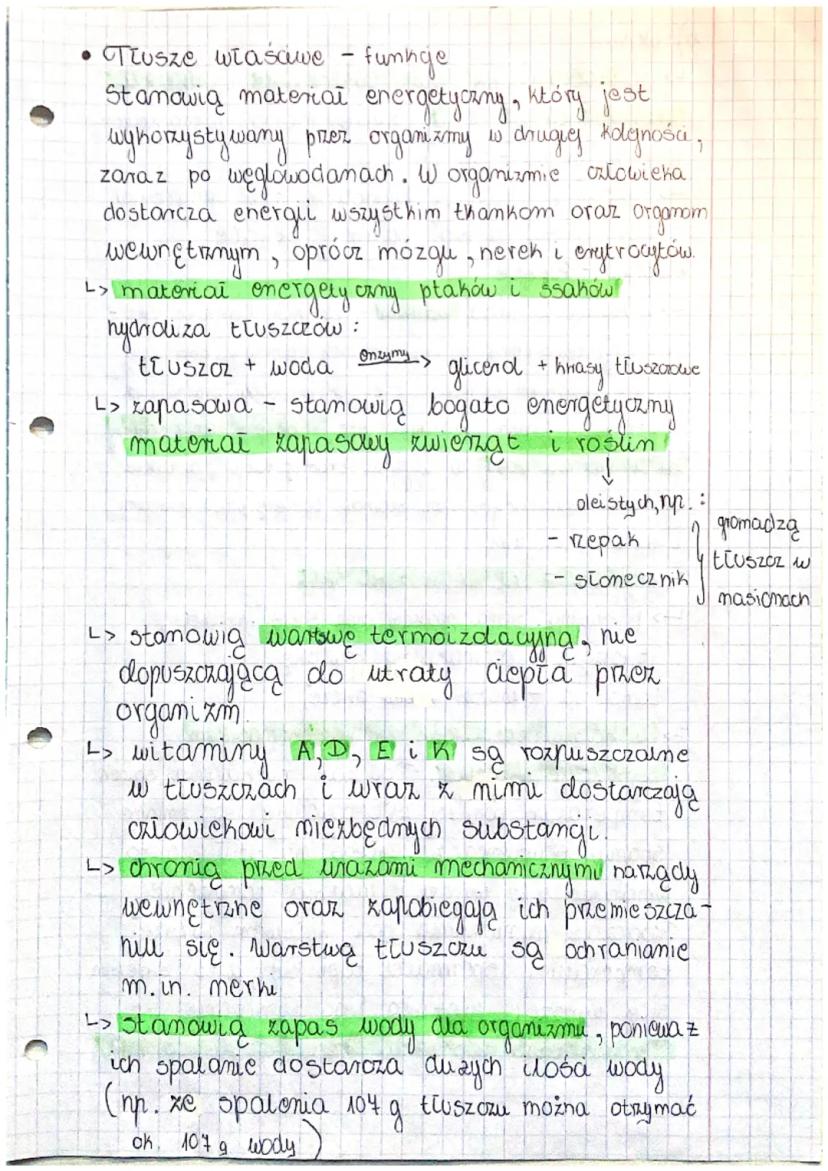 • Tłusze właściwe - funkcje
Stanowią materiał energetyczny, który jest
wykorzystywany przez organizmy w drugiej kolejności,
zaraz po węglowodanach. W organizmie człowieka
dostarcza energii wszystkim tkankom oraz organom
wewnętrznym, oprócz mózgu, nerek i erytrocytów.
↳ materiał energetyczny ptaków i ssaków
hydroliza tłuszczów:
tłuszcz + woda enzymy → glicerol + kwasy tłuszczowe
↳ zapasowa - stanowią bogato energetyczny
materiał zapasowy zwierząt i roślin
↓
oleistych, np.:
- rzepak
- słonecznik
} gromadzą
tłuszcz w
nasionach
↳ stanowią warstwę termoizolacyjną, nie
dopuszczającą do utraty ciepła przez
organizm.
↳ witaminy A, D, E i K są rozpuszczalne
w tłuszczach i wraz z nimi dostarczają
człowiekowi niezbędnych substancji.
↳ chronią przed urazami mechanicznymi narządy
wewnętrzne oraz zapobiegają ich przemieszcza-
niu się. Warstwą tłuszczu są ochraniane
m.in. nerki
↳ stanowią zapas wody dla organizmu, ponieważ
ich spalanie dostarcza dużych ilości wody
(np. ze spalenia 107 g tłuszczu można otrzymać
ok. 107 g wody)